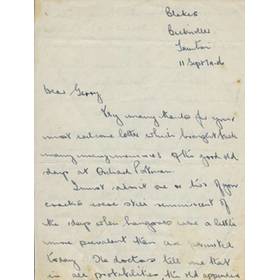 Blakes
Bicknoller
Taunton
11 Sept
Dear Gerry
Very many thanks for your
most welcome letter which brought back
many many memories of the good old
days at Orchard Portman.
I must admit one or two of your
remarks were reminiscent of
the days when hangovers were a little
more prevalent than are permitted
today. The doctors tell me that
in all probabilities the old